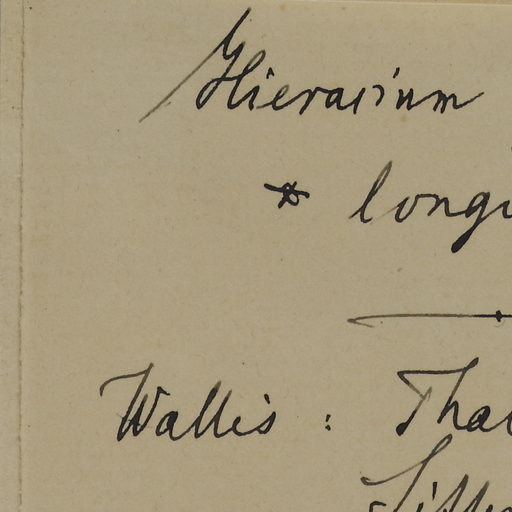 Hieracium
* longi
Wallis : Thal